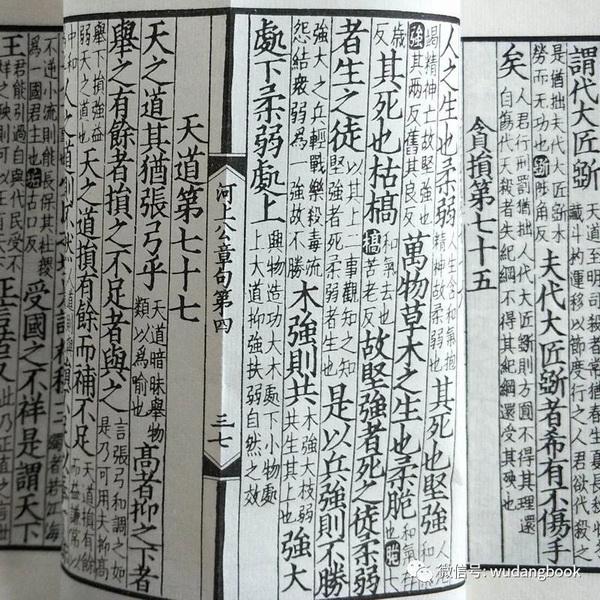 謂代大匠斲 天道至明司殺者常猶春生夏長秋收
斗杓運移以節度行之人君欲代殺之
是猶拙夫代大匠斲木
勞而無功也 斲陟角反 夫代大匠斲者希有不傷手
矣 人君行刑罰猶拙人代大匠斲則方圓不得其理還
自傷代天殺者失紀綱不得其紀綱還受其殃也
貪損第七十五
人之生也柔弱 人生含和氣抱
精神故柔弱也 其死也堅強
竭精神亡故堅強也
強其兩反舊其良反 萬物草木之生也柔脆 和氣存
也脆七
歲 其死也枯槁 和氣去也
槁苦老反 故堅強者死之徒柔弱
者生之徒 以其上二事觀知之知
堅強者死柔弱者生也 是以兵強則不勝
強大之兵輕戰樂殺毒流
怨結衆弱為一強故不勝 木強則共 木強大枝弱
共生其上也 強大
處下柔弱處上 興物造功大木處下小物處
上大道抑強扶弱自然之效
河上公章句第四 三七
天道第七十七
天之道其猶張弓乎 天道暗昧舉物
類以為喻也 高者抑之下者
舉之有餘者損之不足者與之 言張弓和調之如
是乃可用夫抑高
舉下損強益
弱天之道也 天之道損有餘而補不足 天道損有餘
而益謙常以
中和
不逆小流則能長保其社稷
為一國君主也 垢古口反 受國之不祥是謂天下
王 君能引過自與代民受不
祥之殃則可以王有天下 正言若反 此乃正直之言
微信号: wudangbook